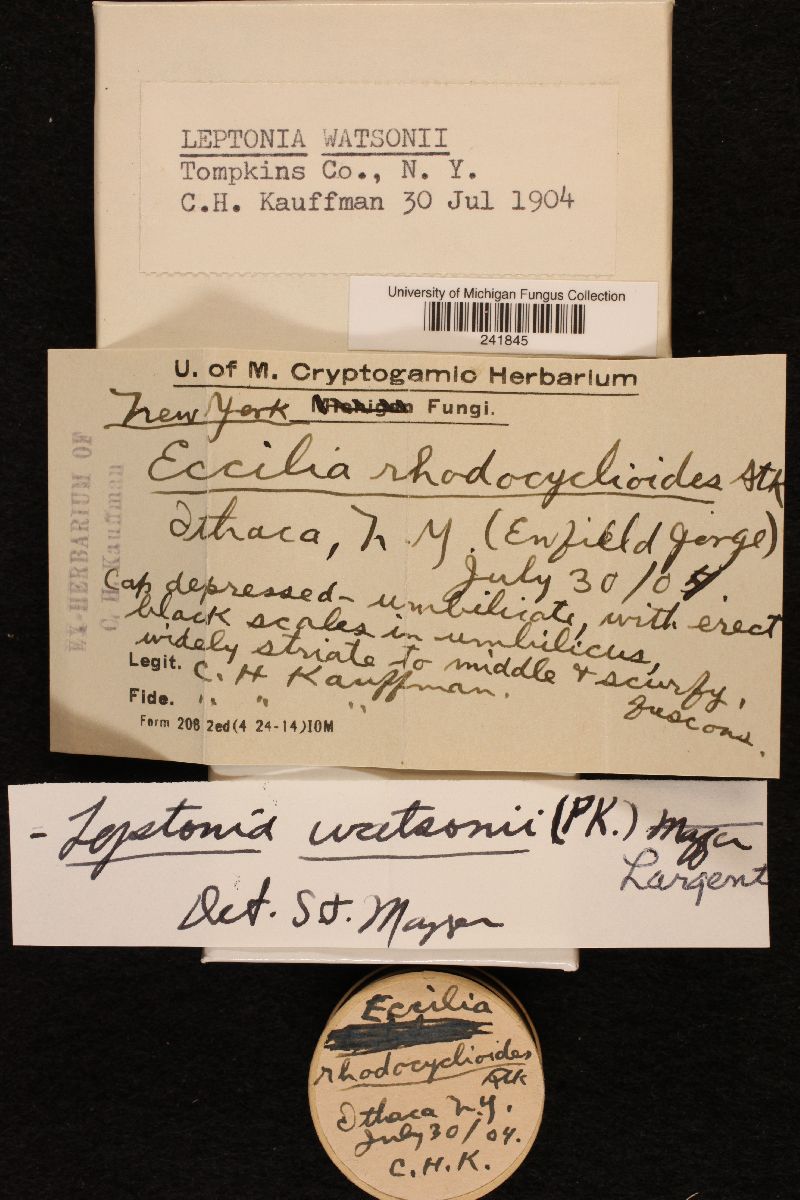 LEPTONIA WATSONII
Tompkins Co., N. Y.
C.H. Kauffman 30 Jul 1904
University of Michigan Fungus Collection
241845
U. of M. Cryptogamic Herbarium
New York Michigan Fungi.
Eccilia rhodocyclioides Atk
Ithaca, N.Y. (Enfield Gorge)
July 30/04
Cap depressed-umbilicate, with erect
black scales in umbilicus,
widely striate to middle & scurfy,
fuscous.
Legit. C. H Kauffman.
Fide. " " "
Form 206 2ed(4 24-14)10M
EX-HERBARIUM OF
C. H. Kauffman
- Leptonia watsonii (PK.) Mazzer
Largent
Det. S.J. Mazzer
Eccilia
rhodocyclioides
Atk
Ithaca N.Y.
July 30/04.
C.H.K.